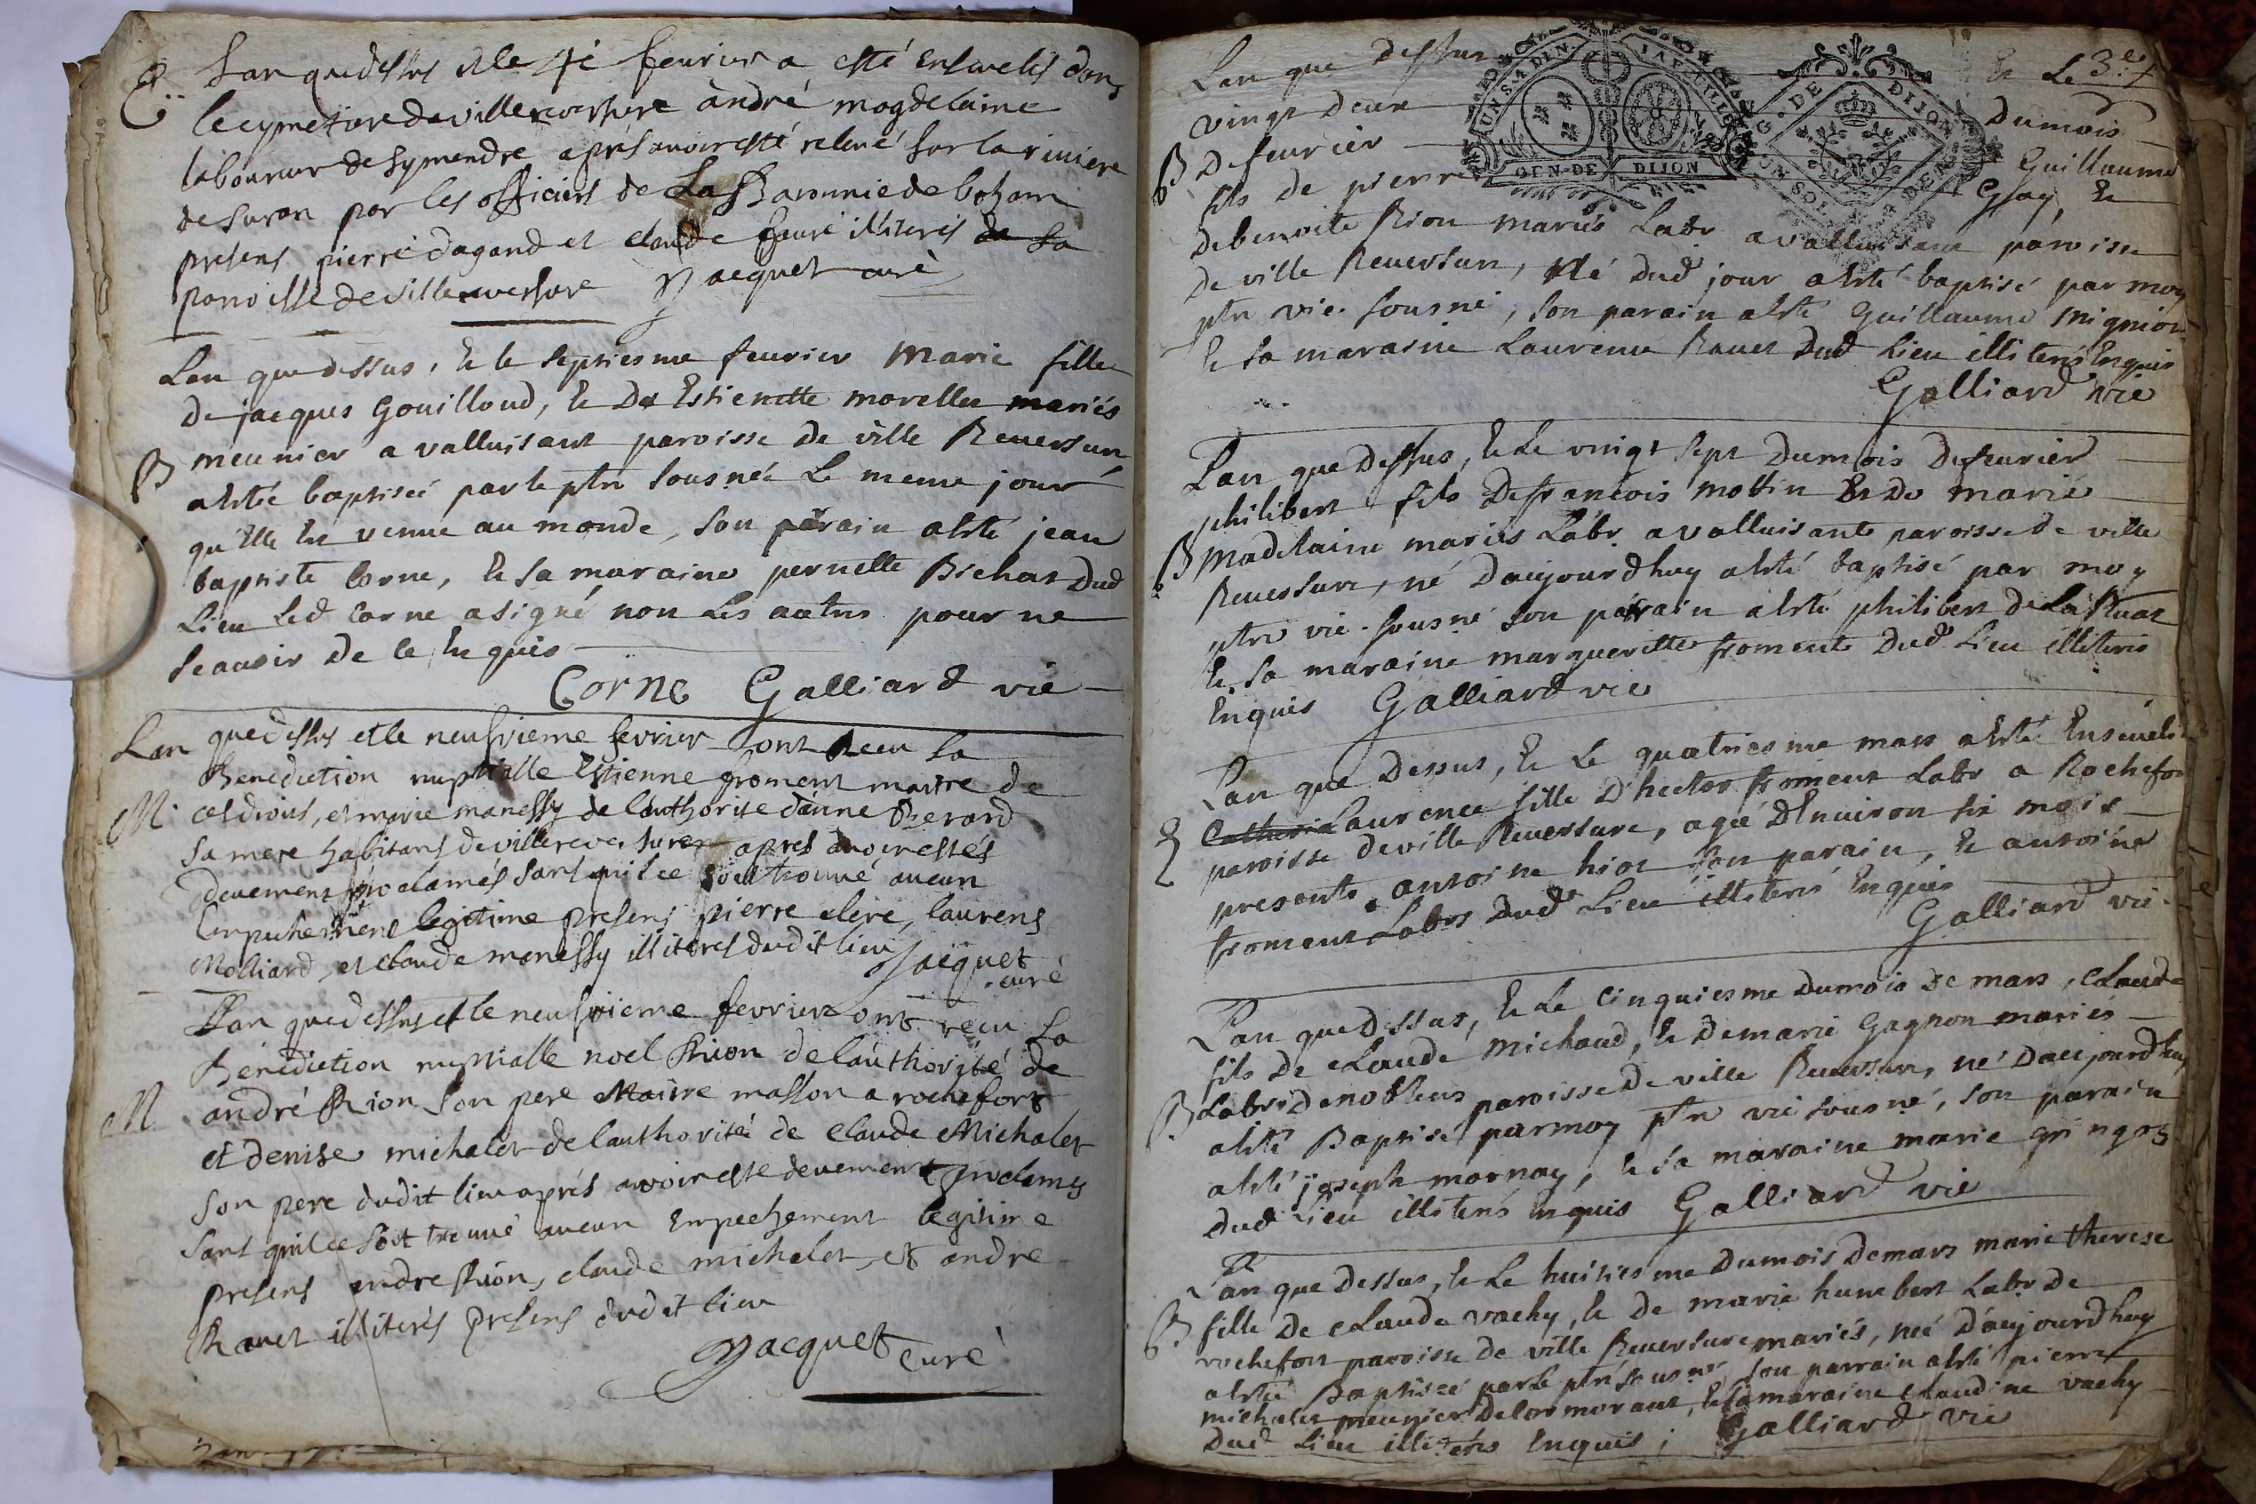 E.
Lan que dessus et le 4e feurier a esté ensuelis dans
le cymetiere de villereversure andré magdelaine
laboureur de symendre aprés auoir esté releué sur la riuiere
de suran par les officiers de La Baronnie de bohan
presens pierre dagand et claude faure illiteres de la
parroisse de villereversure Jacquet curé
Lan que dessus, et le septiesme feurier Marie fille
De jacques Gouilloud, et De Estienette morellet mariés
B meunier a valluisant paroisse De ville Reuersure
a esté baptiseé par le ptre sousné Le meme jour
qu'elle est venue au monde, son parain a esté jean
baptiste Corne, et sa maraine pernette Bichat Dud
Lieu Led Corne a signé non Les autres pour ne
scauoir De ce Enquis
Corne Galliard vic
Lan que dessus et le neufvieme fevrier ont Receu la
Benediction nuptialle Estienne froment maitre de
M. ces droits, et marie manessy de l'authorité d'anne Berard
sa mere habitans de villereversure apres avoir estés
deuement proclamés sans qu'il ce soit trouvé aucun
Empechement legitime presens pierre clere, laurens
Molliard, et claude manessy illiteres dudit lieu Jacquet
curé
Lan que dessus et le neufvieme fevrier ont receu la
Benediction nuptialle noel Rion de lauthorité de
M andré Rion son pere Maitre masson a rochefort
et denise michalet de lauthorité de claude Michalet
son pere dudit lieu aprés avoir esté deuement proclamés
sans quil ce soit trouvé aucun Empechement legitime
presens andre Rion, claude michalet, et andre
Ravet illiterés presens dudit lieu
Jacquet
curé
Lan que Dessus Et Le 3.e
vingt Deux Dumois
B De feurier Guillaume
fils De pierre Gay, Et
De benoite Rion mariés Labr a valluisant paroisse
De ville Reuersure, Né Dud jour a esté baptisé par moy
ptre vic. sousné, son parain a esté Guillaume Mignion
Et sa maraine Laurence Ravet Dud Lieu illiterés Enquis
Galliard vic
Lan que Dessus, Et Le vingt sept Dumois De feurier
philibert fils De francois mottin Et De marie
B Madelaine mariés Labr a valluisant paroisse De ville
Reuersure, né D'aujourdhuy a esté baptisé par moy
ptre vic. sousné son parain a esté philibert De La Ruat
Et sa maraine margueritte froment Dud Lieu illiterés
Enquis Galliard vic
Lan que Dessus, Et Le quatriesme mars a esté Enseueli
E Catherin Laurence fille D'hector froment Labr a Rochefort
paroisse De ville Reuersure, ageé D'Enuiron six mois
presents antoine hiot son parain, Et antoine
froment Labrs Dud Lieu illiterés Enquis
Galliard vic.
Lan que Dessus, Et Le Cinquiesme Dumois De mars, Claude
fils De Claude Michaud, Et De marie Gagnon mariés
B Labrs De nobleus paroisse De ville Reuersure, né D'aujourdhuy
a esté Baptisé par moy ptre vic sousné, son parain
a esté joseph mornay, Et sa maraine marie gringoz
Dud Lieu illiterés Enquis Galliard vic
Lan que Dessus, Et Le huitiesme Dumois De mars marie therese
B fille De Claude vachy, Et De marie humbert Labr De
rochefort paroisse De ville Reuersure mariés, neé D'aujourdhuy
a esté Baptiseé par le ptre sousné, son parrain a esté pierre
michalet meunier De Cormorant, Et sa maraine Claudine vachy
Dud Lieu illiterés Enquis; Galliard vic
GEN·DE DIJON
G·DE DIJON